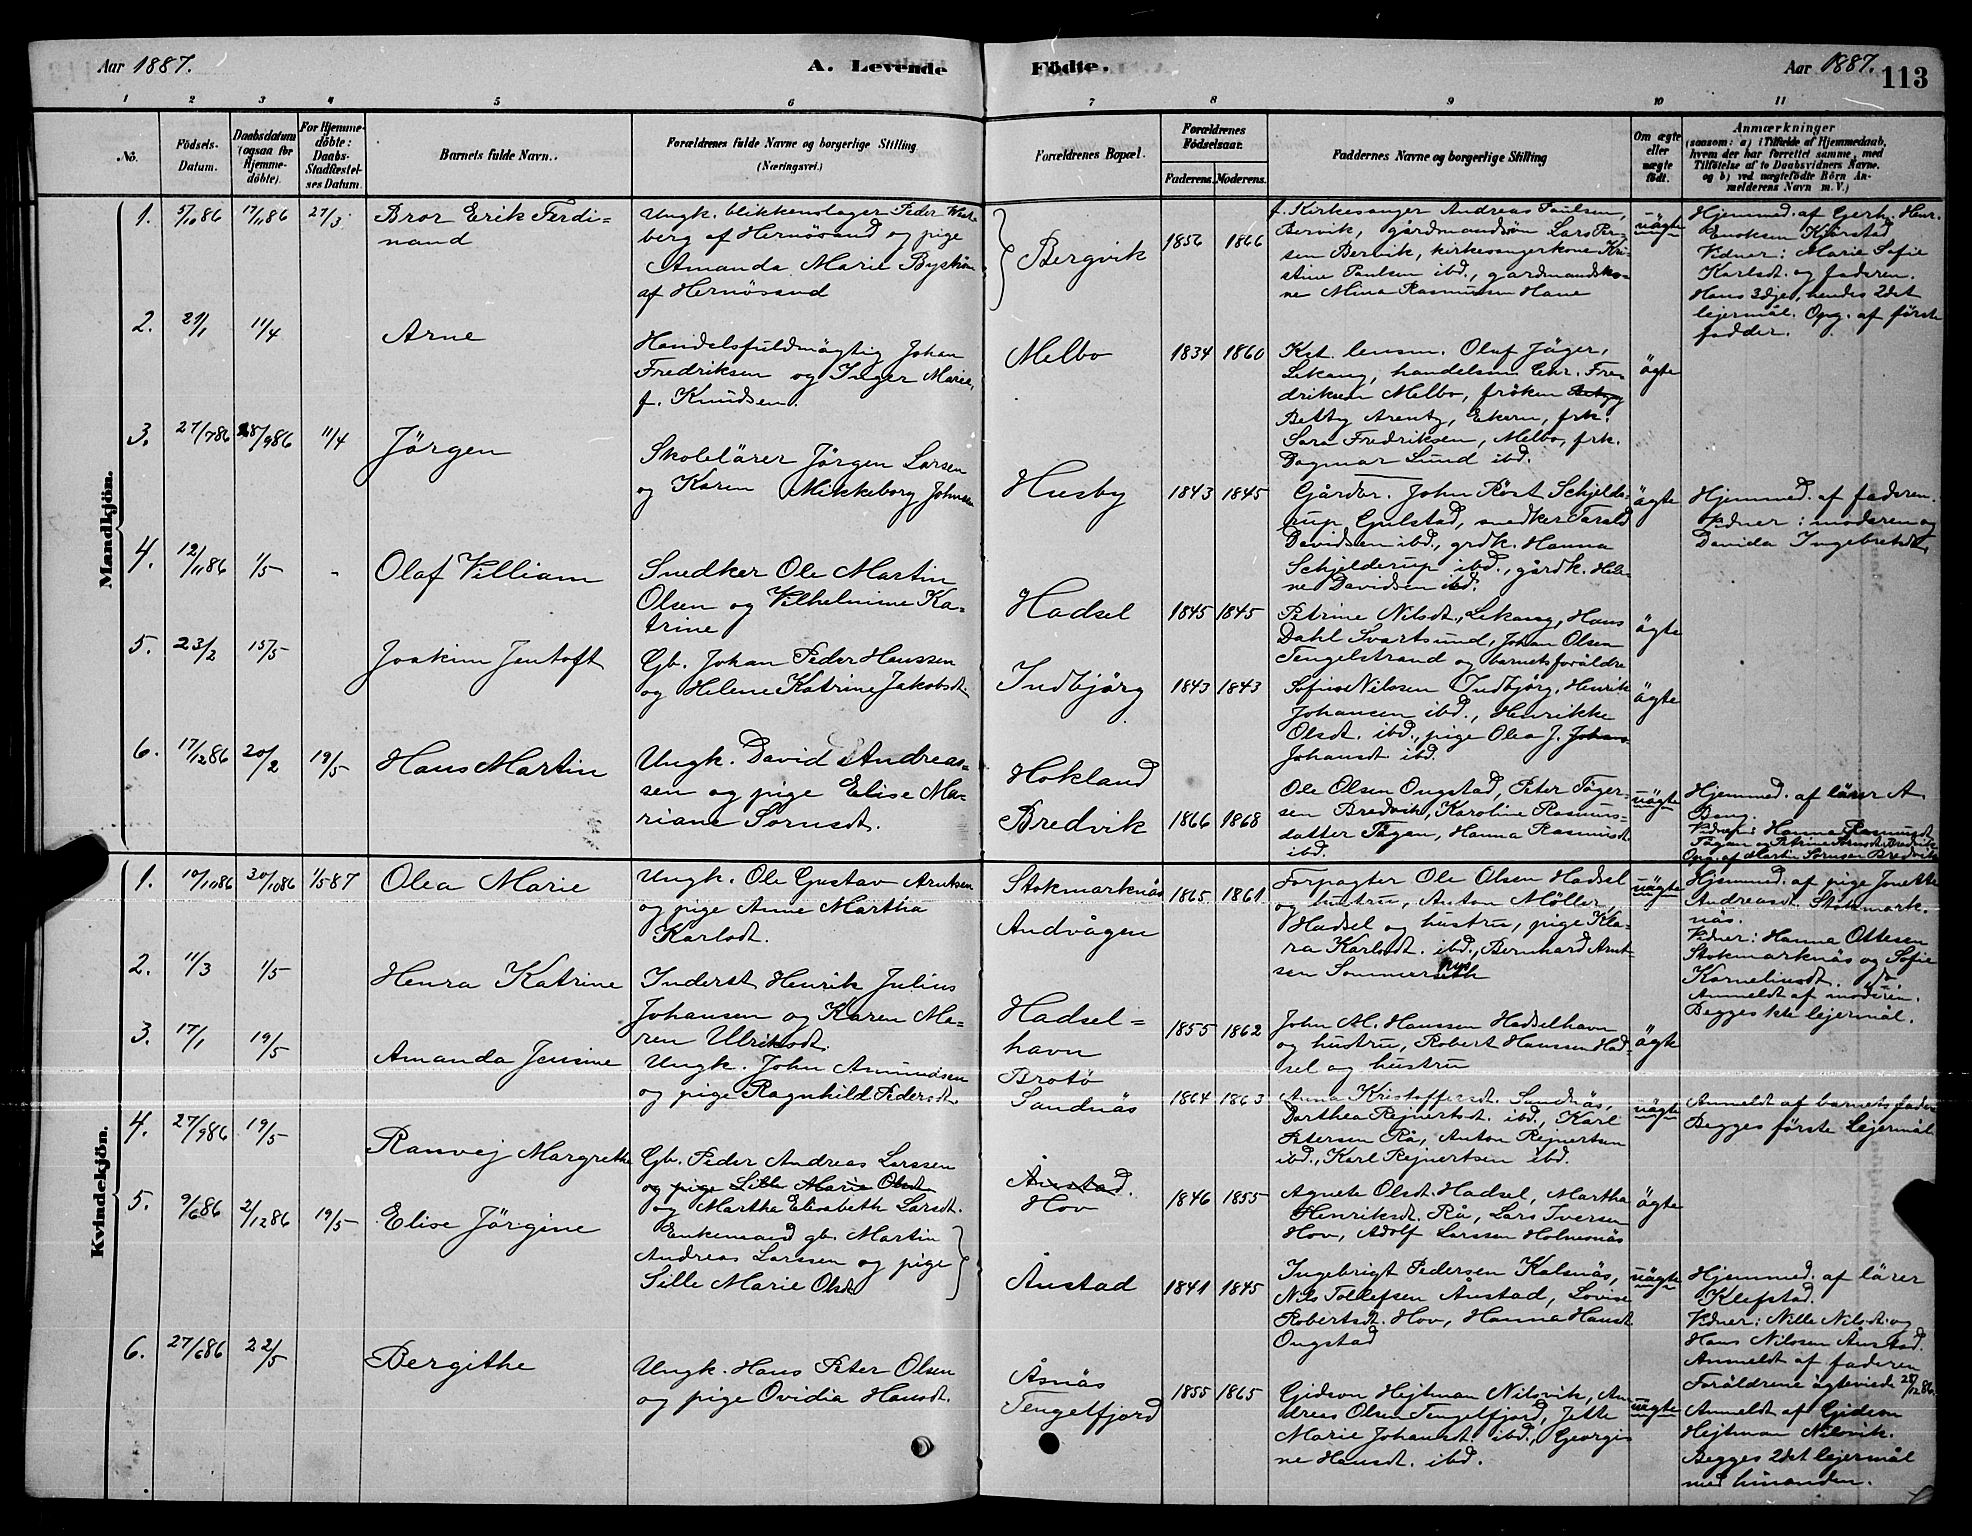 Aar 1887.
A. Levende
Födte.
Aar 1887.
113
1 2 3 4 5 6 7 8 9 10 11
No.
Födsels-
Datum.
Daabsdatum
(ogsaa for
Hjemme-
döbte).
For Hjemme-
döbte:
Daabs-
Stadfæstel-
ses Datum.
Barnets fulde Navn.
Forældrenes fulde Navne og borgerlige Stilling
(Næringsvei.)
Forældrenes Bopæl.
Forældrenes
Födselsaar.
Faderens. Moderens.
Faddernes Navne og borgerlige Stilling
Om ægte
eller
uægte
födt.
Anmærkninger
(saasom: a) i Tilfælde af Hjemmedaab,
hvem der har forrettet samme, med
Tilföielse af to Daabsvidners Navne.
og b) ved uægtefödte Börn An-
melderens Navn m. V.)
Mandkjön.
1. 5/10 86 17/11 86 27/3
Bror Erik Ferdi-
nand
Ungk. blikkenslager Peder
berg af Hernösand og pige
Amanda Marie Byström
af Hernösand
Bergvik
1856 1866
f. Kirkesanger Andreas Paulsen,
Bervik, gårdmandssön Lars Per-
sen Bervik, kirkesangerkone Kri-
stine Paulsen ibd., gårdmandsko-
ne Mina Rasmusen Hane
uägte
Hjemmed. af Gerh. Henr.
Enoksen Kjörstad
Vidner: Marie Sofie
Karlsdt. og faderen.
Hans 3dje, hendes 2det
lejermål. Opg. af förste
fadder.
2. 29/1 11/4
Arne
Handelsfuldmägtig Johan
Fredriksen og Inger Marie,
f. Knudsen.
Melbo
1834 1860
Kst. lensm. Olaf Jäger,
Lekang, handelsm Chr. Fre-
driksen Melbo, fröken
Betty Arentz, Ekern, frk.
Sara Fredriksen, Melbo, frk.
Dagmar Lund ibd.
ägte
3. 27/7 86 28/9 86 11/4
Jörgen
Skolelärer Jörgen Larsen
og Karen Mikkeborg Johnsen
Husby
1843 1845
Gårdbr. John Röst Schjelde-
rup, Gulstad, snedker Tarald
Davidsen ibd., grdk. Hanna
Schjelderup ibd., gårdk. Hele-
ne Davidsen ibd.
ägte
Hjemmed. af faderen.
Vidner: moderen og
Davida Ingebretsdt.
4. 12/11 86 1/5 -
Olaf Villiam
Snedker Ole Martin
Olsen og Vilhelmine Ka-
trine
Hadsel
1845 1845
Petrine Nilsdt., Lekang, Hans
Dahl Svartsund, Johan Olsen
Tengelstrand og barnets foräldre
ägte
5. 23/2 15/5
Joakim Jentoft
Gb. Johan Peder Hanssen
og Helene Katrine Jakobsdt.
Indbjörg
1843 1843
Sofius Nilssen Indbjörg, Henrik
Johansen ibd., Henrikke
Olsdt. ibd., pige Olea J. Johan-
Johansdt ibd.
ägte
6. 17/12 86 20/2 19/5
Hans Martin
Ungk. David Andreas-
sen og pige Elise Ma-
riane Sörnsdt.
Hokland
Bredvik
1866 1868
Ole Olsen Ongstad, Peter Töger-
sen Bredvik, Karoline Rasmus-
datter Tagan, Hanna Rasmusdt.
ibd.
uägte
Hjemmed. af lärer A
Bang.
Vidner: Hanna Rasmusdt
Tagan og Petrine Arnsdt. Bredvik
Opg. af Martin Sörnsen Bredvik
Kvindekjön.
1. 10/10 86 30/10 86 1/5 87
Olea Marie
Ungk. Ole Gustav Arntsen
og pige Anne Martha
Karlsdt.
Stokmarknäs
Andvågen
1865 1861
Forpagter Ole Olsen Hadsel
og hustru, Anton Möller,
Hadsel og hustru, pige Kla-
ra Karlsdt. ibd., Bernhard Arnt-
sen
uägte
Hjemmed. af pige Jonette
Andreasdt. Stokmark-
näs.
Vidner: Hanna Ottesen
Stokmarknäs og Sofie
Korneliusdt. do
Anmeldt af moderen.
Begges 1ste lejermål.
2. 11/3 1/5
Henra Katrine
Inderst Henrik Julius
Johansen og Karen Ma-
ren Ulriksdt.
Hadsel-
havn
1855 1862
John M. Hanssen Hadselhavn
og hustru, Robert Hanssen Had-
sel og hustru
ägte
3. 17/1 19/5
Amanda Jensine
Ungk. John Asmundsen
og pige Ragnhild Pedersdt.
Brotö
Sandnäs
1864 1863
Anna Kristoffersdt. Sandnäs,
Dorthea Rejnertsdt. ibd., Karl
Petersen Rå, Anton Rejnertsen
ibd., Karl Rejnertsen ibd.
uägte
Anmeldt af barnets fader
Begges förste lejermål
4. 27/9 86 19/5
Ranvej Margrethe
Gb. Peder Andreas Larssen
og pige Sille Marie Olsdt
og Martha Elisabeth Larsdt.
Ånstad.
Hov
1846 1855
Agnete Olsdt. Hadsel, Martha
Henriksdt. Rå, Lars Iversen
Hov, Adolf Larssen Holmsnäs
ägte
5. 9/6 86 2/12 86 19/5
Elise Jörgine
Enkemand gb. Martin
Andreas Larssen og pige
Sille Marie Olsdt
Ånstad
1841 1845
Ingebrigt Pedersen Kalsnäs,
Nils Tollefsen Ånstad, Lovise
Robertsdt. Hov, Hanna Hansdt
Ongstad
uägte
Hjemmed. af lärer
Klefstad.
Vidner: Nille Nilsdt. og
Hans Nilssen Ånstad.
Anmeldt af faderen
Foräldrene ägteviede 28/12 86.
6. 27/6 86 22/5
Bergithe
Ungk. Hans Peter Olsen
og pige Ovidia Hansdt.
Åsnäs
Tengelfjord
1855 1865
Gidson Hejtman Nilsvik, An-
dreas Olsen Tengelfjord, Jette
Marie Johansdt. ibd., Georgi-
ne Hansdt. ibd.
uägte
Anmeldt af Gidson
Hejtman Nilsvik.
Begges 2det lejermål
med hinanden.